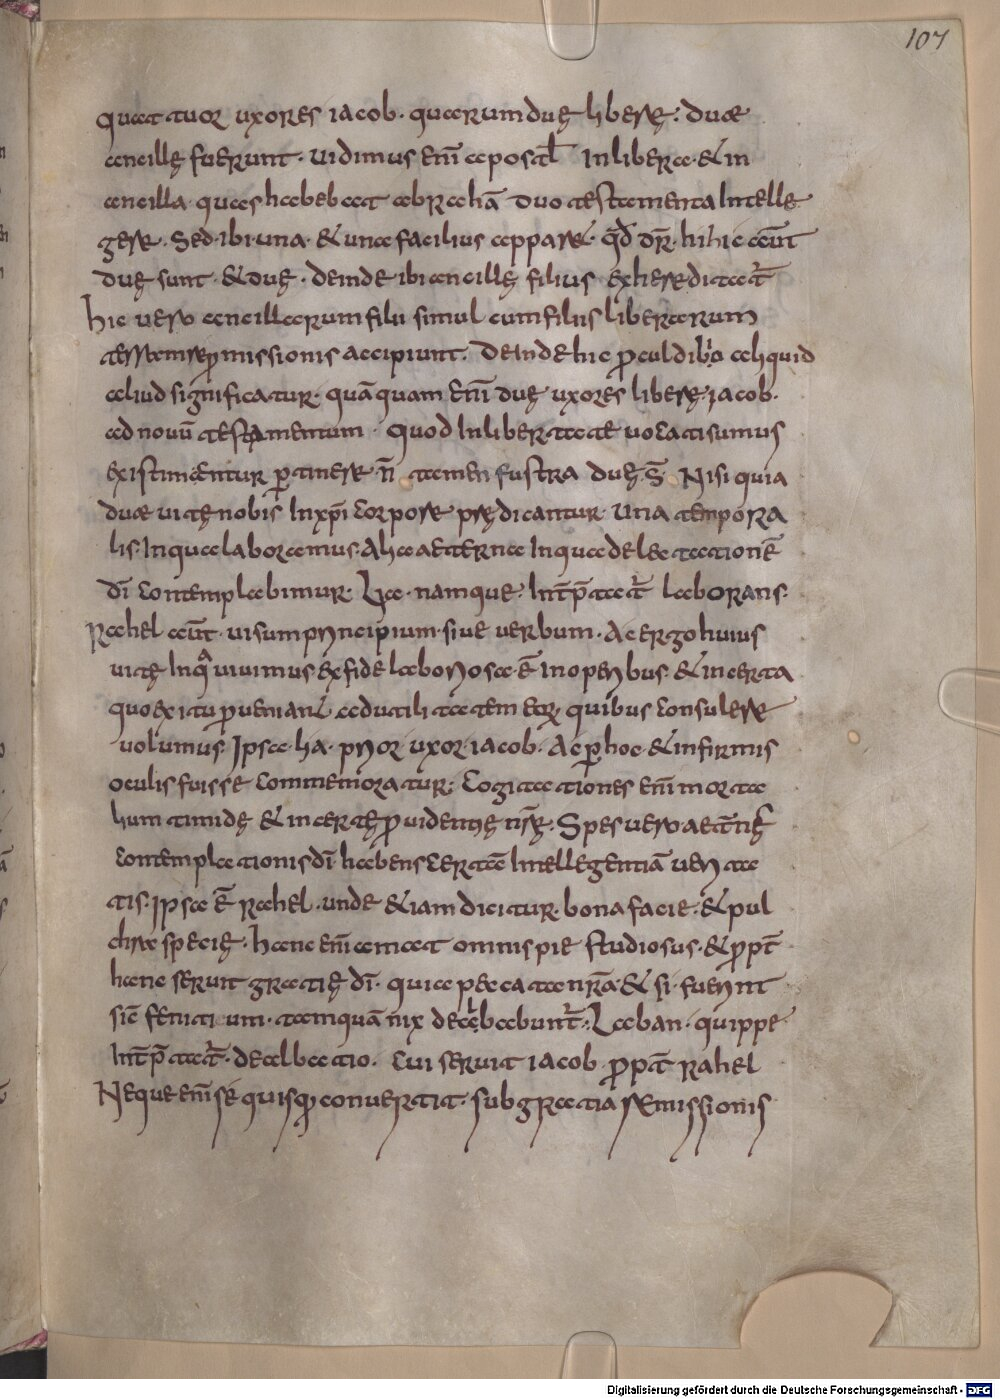 107
quattuor uxores iacob. quarum duę liberę. duae
ancillę fuerunt. uidimus enī apostł In libera & in
ancilla quas habebat abrahā duo testamenta Intelle
gere. Sed ibi una & una facilius appare& qđ dr̄. hi hic aūt
duę sunt & duę. deinde ibi ancillę filius exhereditat̄
hic uero ancillarum filii simul cum filiis liberarum
terram repromissionis accipiunt. deinde hic proculdibio aliquid
aliud significatur. quāquam enī duę uxores liberę iacob.
ad nouū testamentum quod In libertate uocati sumus
existimentur ꝑtinere n̄ tamen fustra duę s̄ Nisi quia
duae uitę nobis In xp̄i corpore prędicantur una tempora
lis. In qua laboramus. Alia aeterna In qua delectationē
dī contemplabimur. Lia namque Intp̄tat̄ laborans.
Rachel aūt uisum principium. siue uerbum. Ac ergo huius
uitę In qua uiuimus ex fide laboriosa ē In operibus & incerta
quo exitu proueniant ad utilitatem eorum quibus consulere
uolumus Ipsa lia prior uxor iacob. Ac ꝑ hoc & infirmis
oculis fuisse commemoratur. Cogitationes enī morta
lium timidę & incertę prouidentię nr̄ę. Spes uero aet̄nę
contemplationis dī habens certā Intellegentiā uerita
tis. Ipsa ē Rachel. unde & iam dicitur bona facie & pul
chra specię. hanc enī amat omnis pie studiosus. & propt̄
hanc seruit gratię dī. qua peccata nr̄a & si fuerint
sic fenitium. tamquā nix dealbabunt̄. Laban quippe
Intp̄tat̄. dealbatio. cui seruit iacob propt̄ rahel
Neque enī se quisquam conuertit. sub gratia remissionis
Digitalisierung gefördert durch die Deutsche Forschungsgemeinschaft - DFG